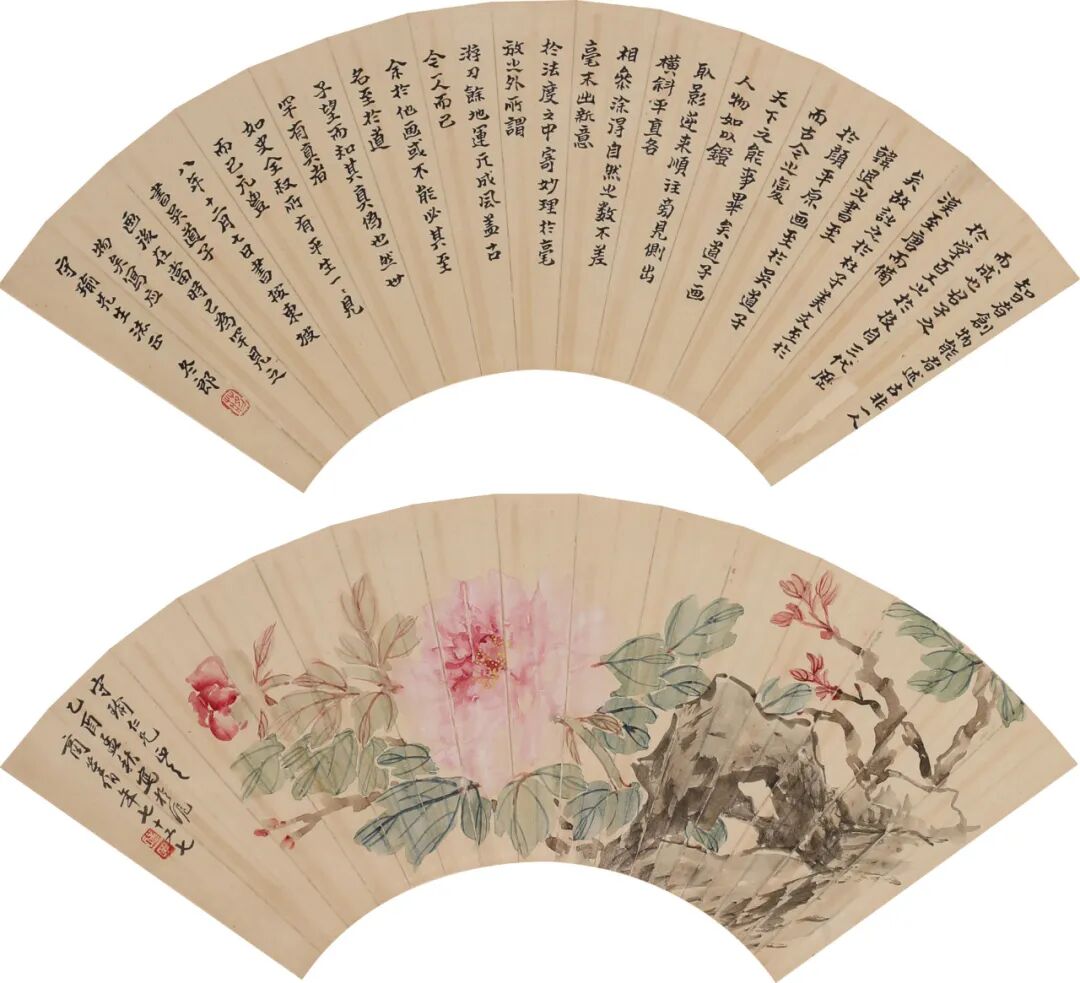 智者創物能者述古非一人
而成也君子之
於學百工之於技自三代歷
漢至唐而備
矣故詩之於杜子美文至於
韓退之書至
於顏平原画至於吳道子
而古今之變
天下之能事畢矣道子画
人物如以鐙
取影逆來順往旁見側出
橫斜平直各
相參涂得自然之數不差
毫末出新意
於法度之中寄妙理於毫
放之外所謂
游刃餘地運斤成風蓋古
今一人而已
余於他画或不能必其至
名至於道
子望而知其真偽也然世
罕有真者
如史全叔所有平生一見
而已元豐
八年十一月七日書按東坡
書吳道子
画後在當時已為罕見之
物矣寫應
守瑜先生法正 冬郎
守瑜仁兄正之
乙酉孟秋寫於滬
商笙伯年七十又七